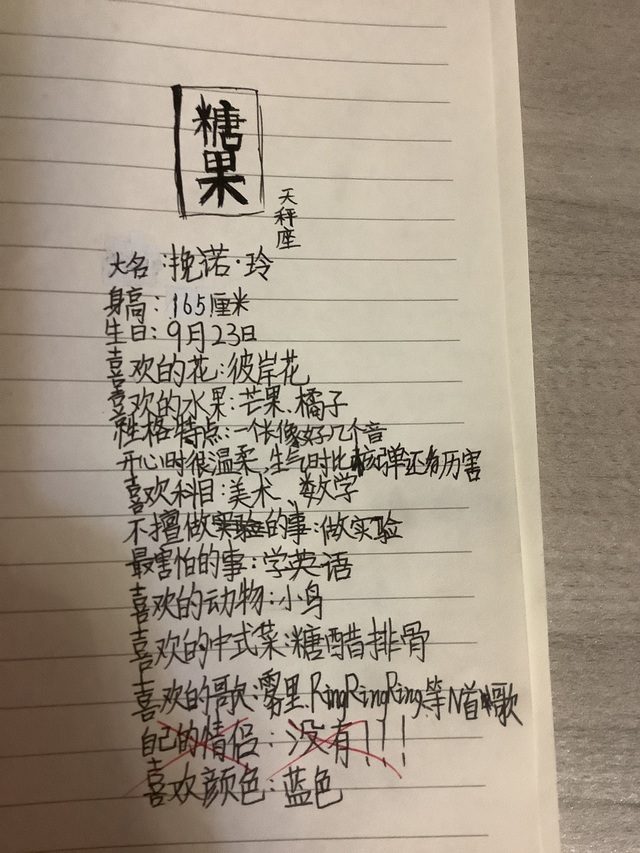 糖果
天秤座
大名:挽诺·玲
身高:165厘米
生日:9月23日
喜欢的花:彼岸花
喜欢的水果:芒果、橘子
性格特点:一个长像好几个音
开心时很温柔,生气时比核弹还有历害
喜欢科目:美术、数学
不擅做实验的事:做实验
最害怕的事:学英语
喜欢的动物:小鸟
喜欢的中式菜:糖醋排骨
喜欢的歌:雾里、RingRingRing等N首歌
自己的情侣:没有!!!
喜欢颜色:蓝色